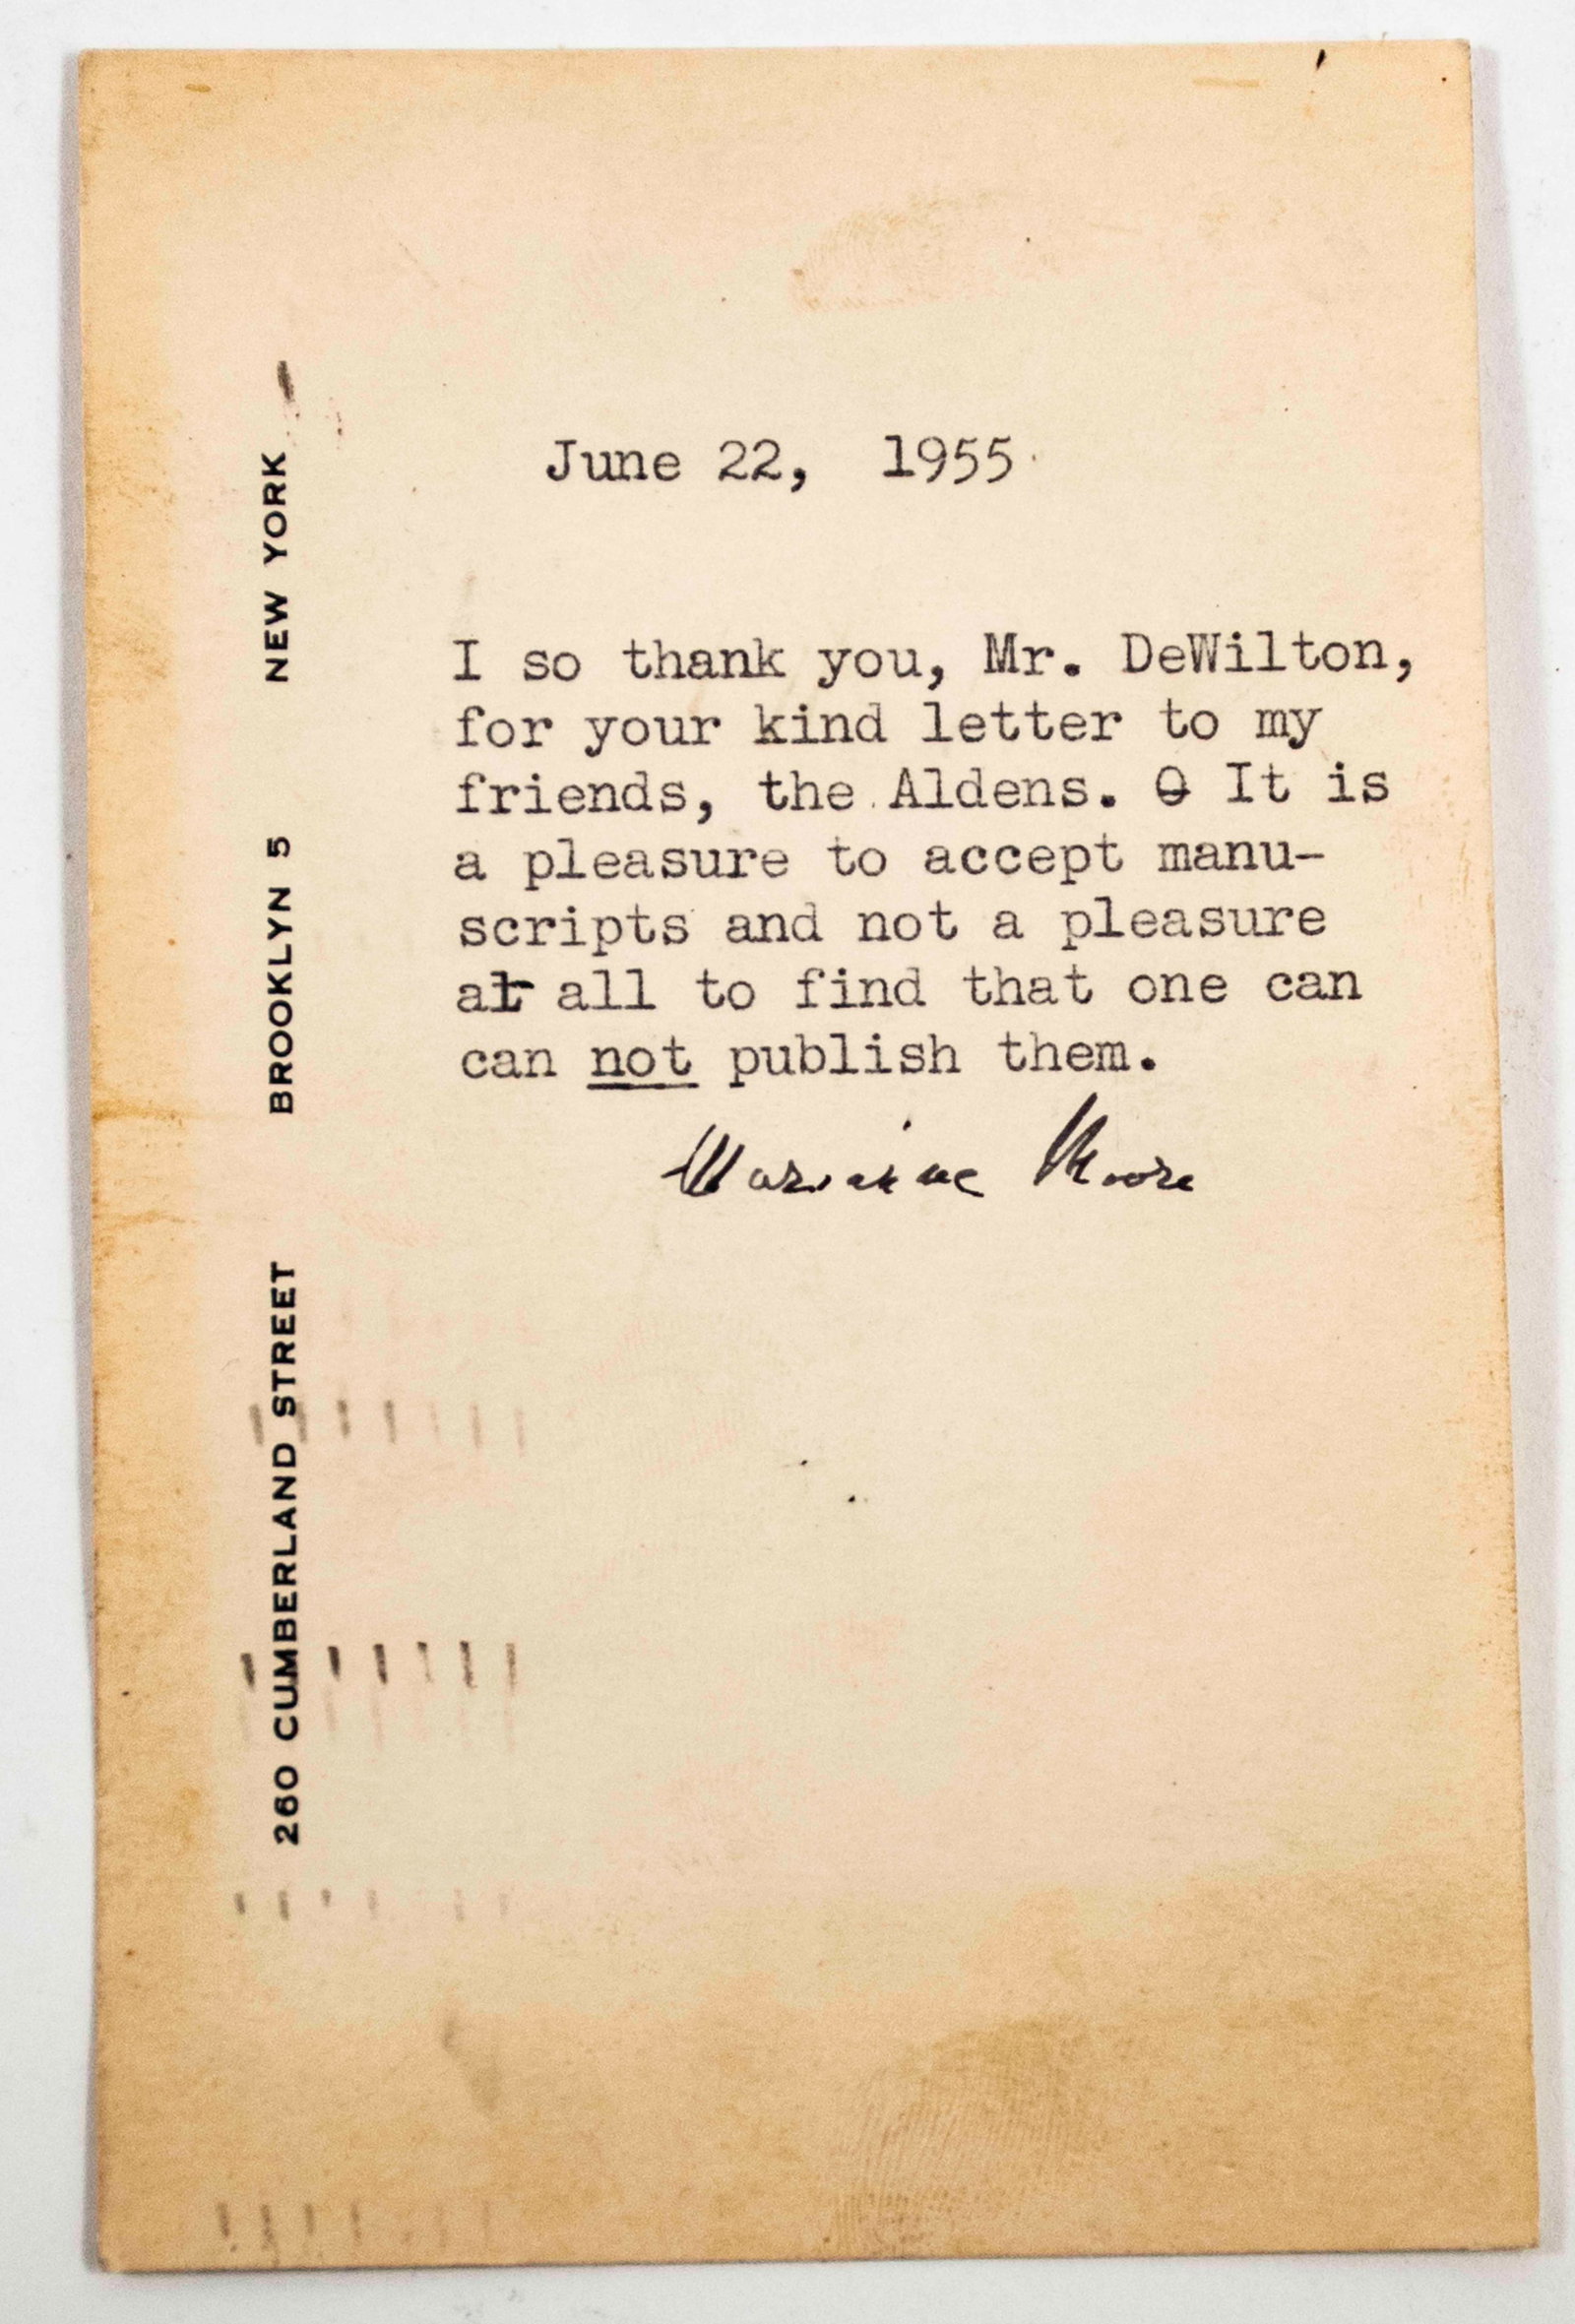 260 CUMBERLAND STREET BROOKLYN 5 NEW YORK
June 22, 1955
I so thank you, Mr. DeWilton,
for your kind letter to my
friends, the Aldens. O It is
a pleasure to accept manu-
scripts and not a pleasure
at all to find that one can
can not publish them.
Marianne Moore